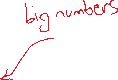 big numbers